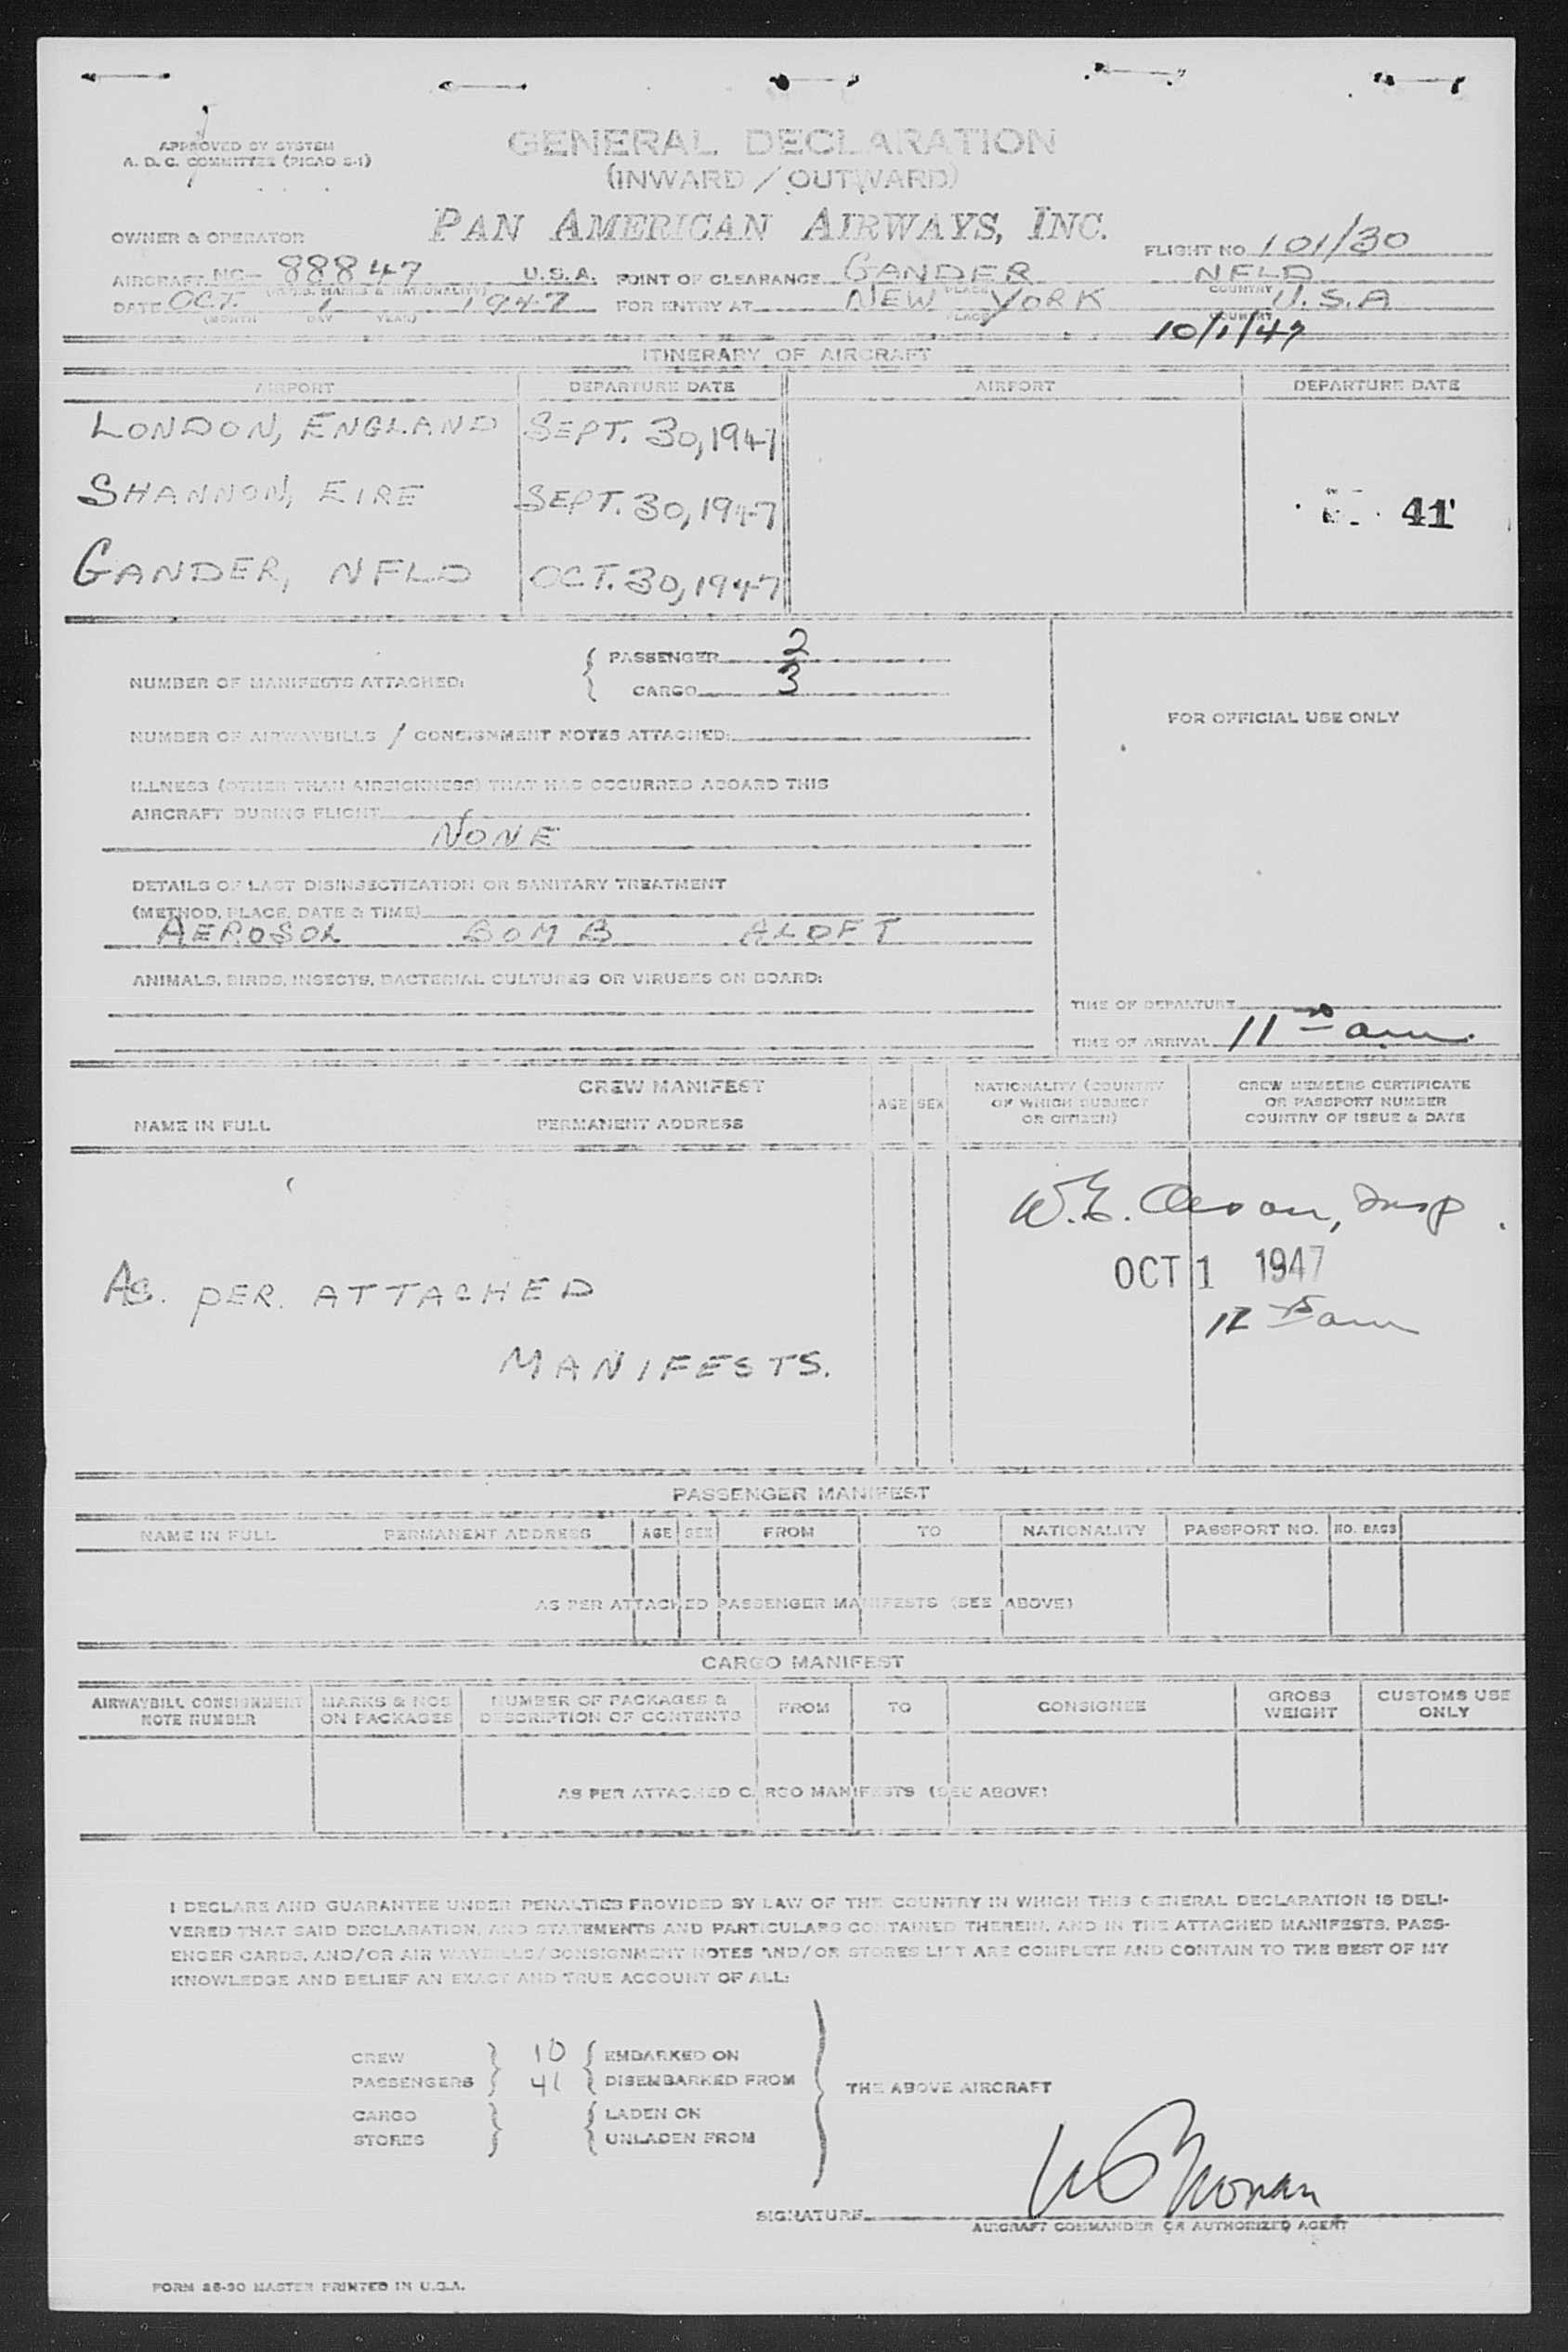 APPROVED BY SYSTEM
A. D. C. COMMITTEE (PICAO S-1)
GENERAL DECLARATION
(INWARD / OUTWARD)
PAN AMERICAN AIRWAYS, INC.
OWNER & OPERATOR
FLIGHT NO 101/30
AIRCRAFT NC- 88847 U.S.A. POINT OF CLEARANCE GANDER NFLD
(REG'D. MARKS & NATIONALITY) PLACE COUNTRY
DATE OCT. 1 1947 FOR ENTRY AT NEW YORK U.S.A
(MONTH DAY YEAR) PLACE COUNTRY
10/1/47
ITINERARY OF AIRCRAFT
AIRPORT DEPARTURE DATE AIRPORT DEPARTURE DATE
LONDON, ENGLAND SEPT. 30, 1947
SHANNON, EIRE SEPT. 30, 1947
41
GANDER, NFLD OCT. 30, 1947
PASSENGER 2
NUMBER OF MANIFESTS ATTACHED:
CARGO 3
FOR OFFICIAL USE ONLY
NUMBER OF AIRWAYBILLS / CONSIGNMENT NOTES ATTACHED:
ILLNESS (OTHER THAN AIRSICKNESS) THAT HAS OCCURRED ABOARD THIS
AIRCRAFT DURING FLIGHT
NONE
DETAILS OF LAST DISINSECTIZATION OR SANITARY TREATMENT
(METHOD, PLACE, DATE & TIME)
AEROSOL BOMB ALOFT
ANIMALS, BIRDS, INSECTS, BACTERIAL CULTURES OR VIRUSES ON BOARD:
TIME OF DEPARTURE
TIME OF ARRIVAL 11 am.
CREW MANIFEST
NAME IN FULL PERMANENT ADDRESS AGE SEX
NATIONALITY (COUNTRY
OF WHICH SUBJECT
OR CITIZEN)
CREW MEMBERS CERTIFICATE
OR PASSPORT NUMBER
COUNTRY OF ISSUE & DATE
W.E. Insp.
OCT 1 1947
am
AS. PER. ATTACHED
MANIFESTS.
PASSENGER MANIFEST
NAME IN FULL PERMANENT ADDRESS AGE SEX FROM TO NATIONALITY PASSPORT NO. NO. BAGS
AS PER ATTACHED PASSENGER MANIFESTS (SEE ABOVE)
CARGO MANIFEST
AIRWAYBILL CONSIGNMENT
NOTE NUMBER
MARKS & NOS
ON PACKAGES
NUMBER OF PACKAGES &
DESCRIPTION OF CONTENTS
FROM TO CONSIGNEE
GROSS
WEIGHT
CUSTOMS USE
ONLY
AS PER ATTACHED CARGO MANIFESTS (SEE ABOVE)
I DECLARE AND GUARANTEE UNDER PENALTIES PROVIDED BY LAW OF THE COUNTRY IN WHICH THIS GENERAL DECLARATION IS DELI-
VERED THAT SAID DECLARATION, AND STATEMENTS AND PARTICULARS CONTAINED THEREIN, AND IN THE ATTACHED MANIFESTS, PASS-
ENGER CARDS, AND/OR AIR WAYBILLS/CONSIGNMENT NOTES AND/OR STORES LIST ARE COMPLETE AND CONTAIN TO THE BEST OF MY
KNOWLEDGE AND BELIEF AN EXACT AND TRUE ACCOUNT OF ALL:
CREW 10 EMBARKED ON
PASSENGERS 41 DISEMBARKED FROM
THE ABOVE AIRCRAFT
CARGO LADEN ON
STORES UNLADEN FROM
SIGNATURE
AIRCRAFT COMMANDER OR AUTHORIZED AGENT
FORM 26-30 MASTER PRINTED IN U.S.A.